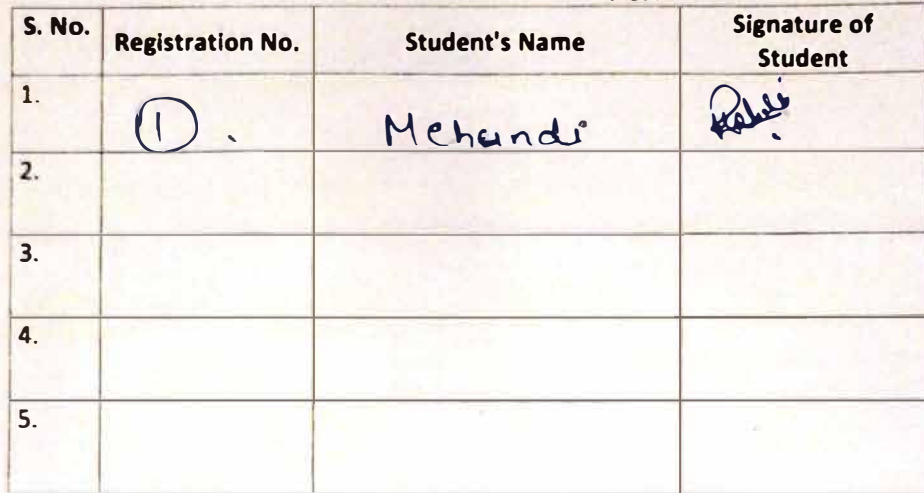 S. No. Registration No. Student's Name Signature of Student
1. 1 . Mehandi
2.
3.
4.
5.